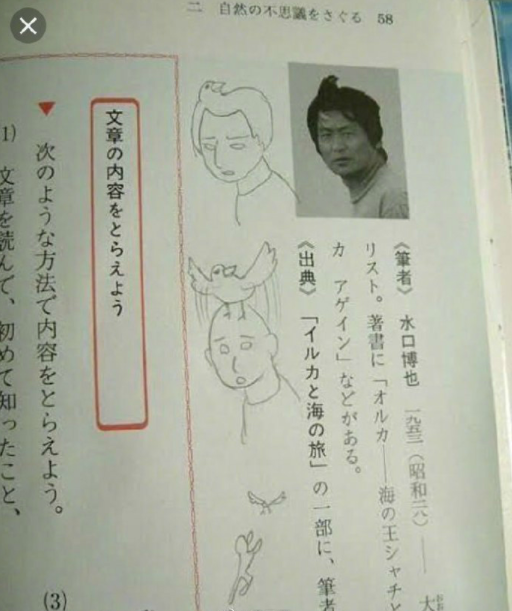 二 自然の不思議をさぐる 58
《筆者》 水口博也 一九五三（昭和二八）——
リスト。著書に「オルカ——海の王シャチと
カ アゲイン」などがある。
《出典》 「イルカと海の旅」の一部に、筆者
文章の内容をとらえよう
▼ 次のような方法で内容をとらえよう。
(3)
1) 文章を読んで、初めて知ったこと、